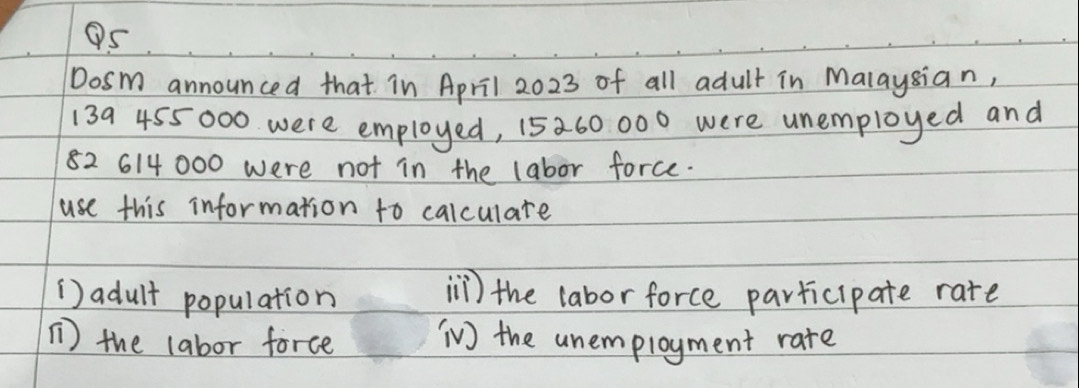 Q5
DOSM announced that in April 2023 of all adult in Malaysian,
139 455 000 were employed, 15 260 000 were unemployed and
82 614 000 were not in the labor force.
use this information to calculate
i) adult population iii) the labor force participate rate
ii) the labor force iv) the unemployment rate